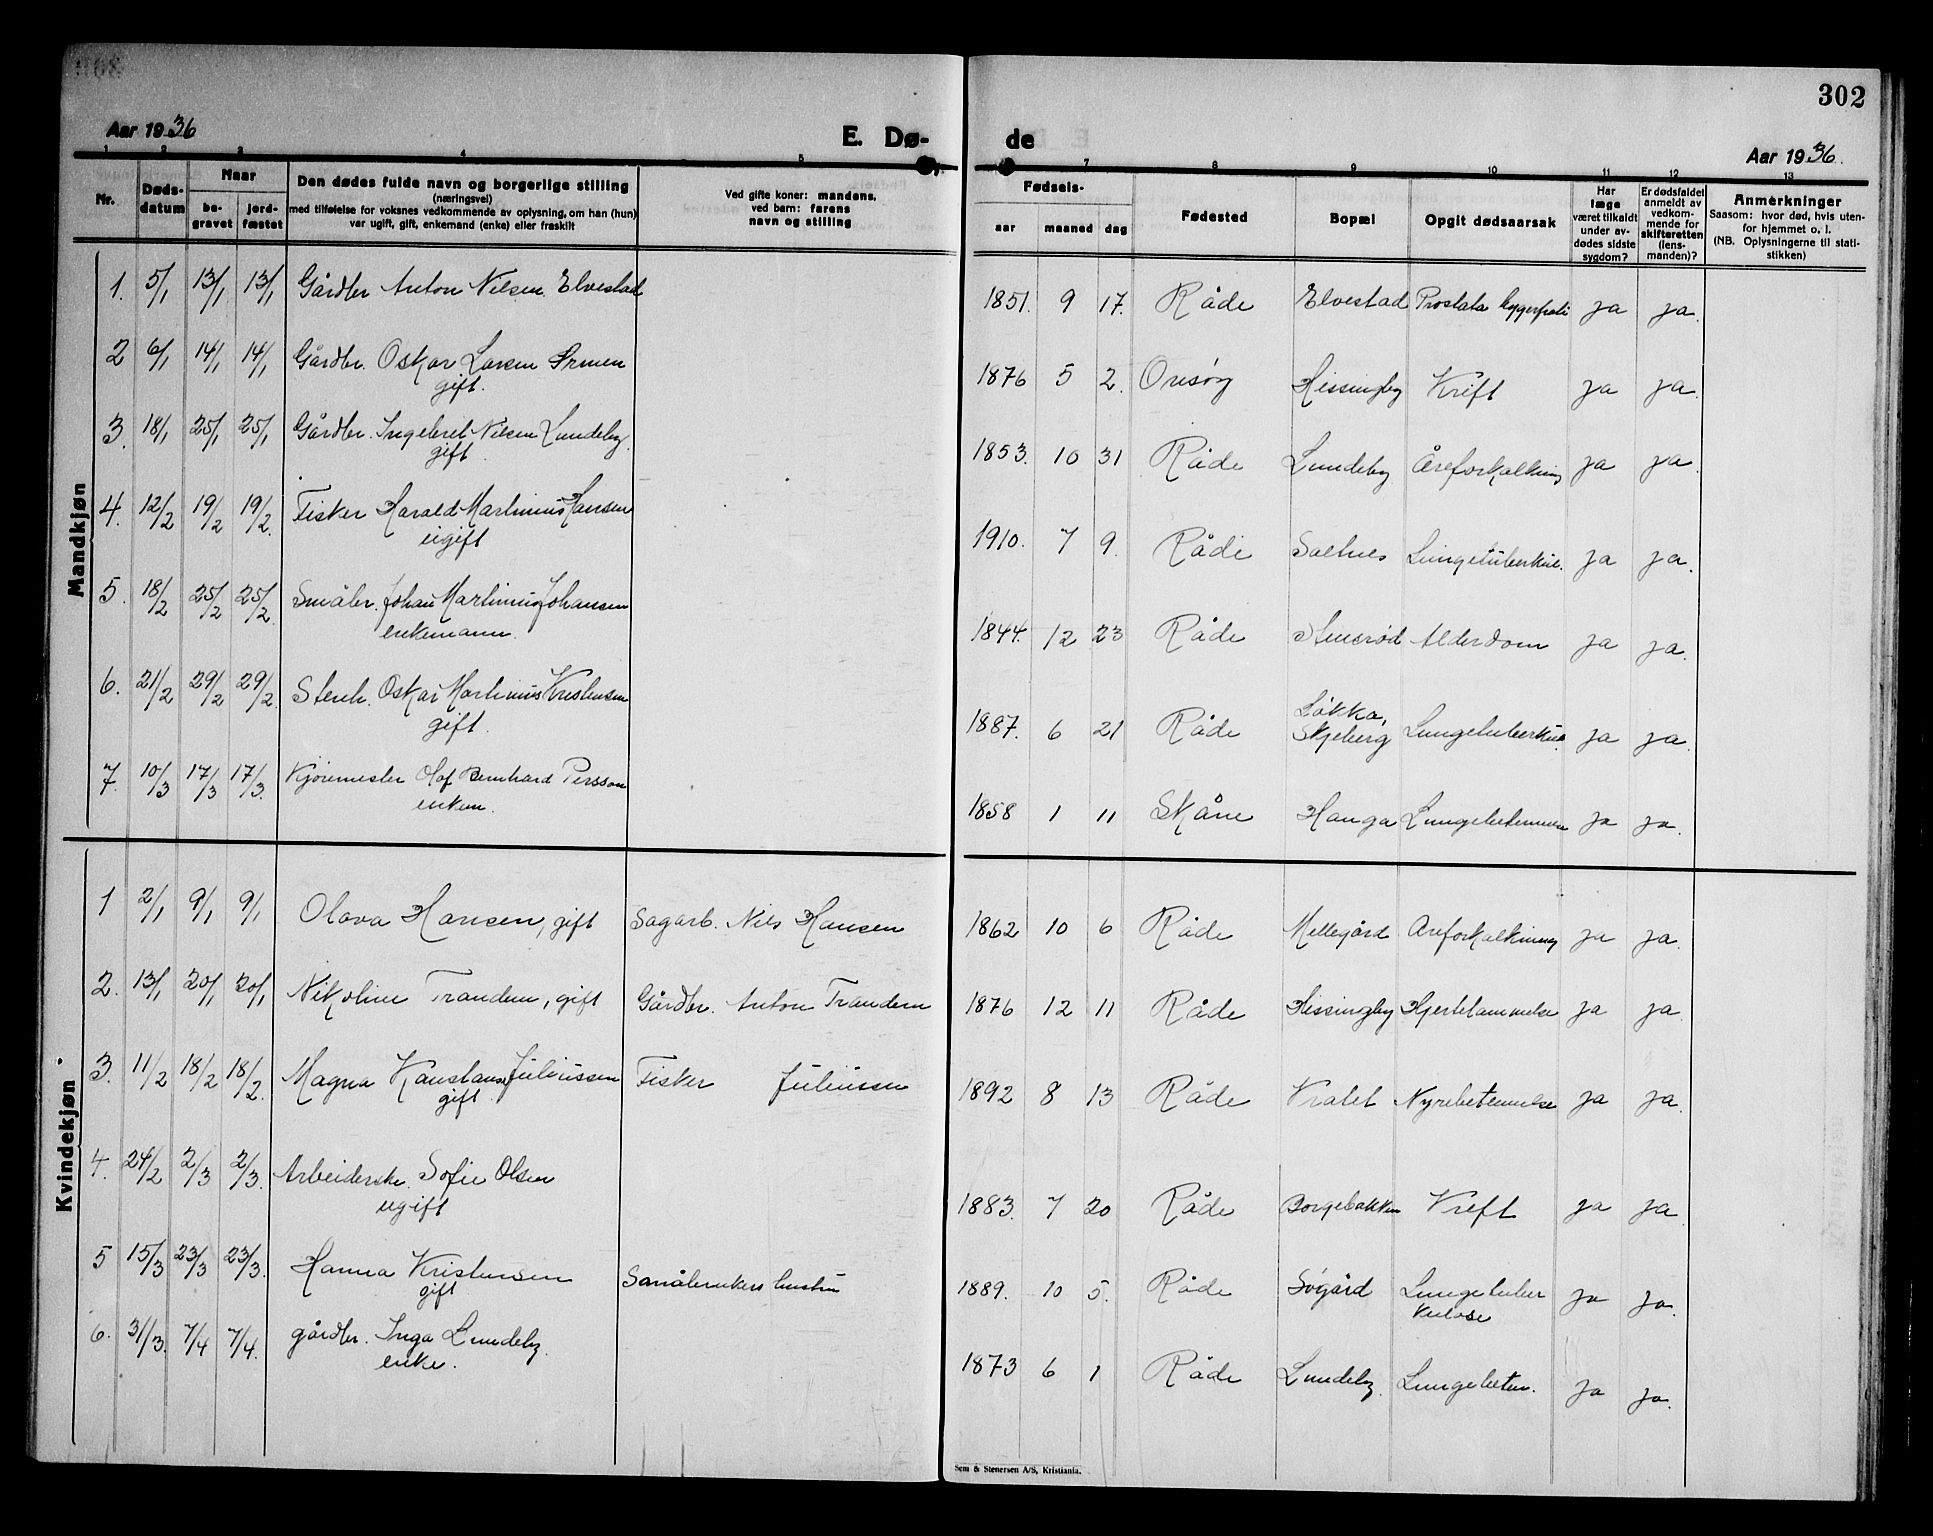 302
Aar 1936
E. Dø-
de
Aar 1936.
1 2 3 4 5 7 8 9 10 11 12 13
Nr.
Døds-
datum
Naar
be-
gravet
jord-
fæstet
Den dødes fulde navn og borgerlige stilling
(næringsvei)
med tilføielse for voksnes vedkommende av oplysning, om han (hun)
var ugift, gift, enkemand (enke) eller fraskilt
Ved gifte koner: mandens,
ved barn: farens
navn og stilling
Fødsels-
aar maaned dag
Fødested
Bopæl
Opgit dødsaarsak
Har
læge
været tilkaldt
under av-
dødes sidste
sygdom?
Er dødsfaldet
anmeldt av
vedkom-
mende for
skifteretten
(lens-
manden)?
Anmerkninger
Saasom: hvor død, hvis uten-
for hjemmet o. l.
(NB. Oplysningerne til stati-
stikken)
Mandkjøn
1. 5/1 13/1 13/1 Gårdbr Anton Nilsen Elvestad 1851. 9 17. Råde Elvestad Prostata ja ja.
2 6/1 14/1 14/1 Gårdbr. Oskar Larsen 1876 5 2. Onsøy Hissingby Kreft ja ja.
gift.
3. 18/1 25/1 25/1 Gårdbr. Ingebret Nilsen Lundeby 1853. 10 31 Råde Lundeby Åreforkalkning ja ja.
gift
4. 12/2 19/2 19/2. Fisker Harald Martinius Hansen 1910. 7 9. Råde Saltnes Lungetuberkul. ja ja.
ugift
5. 18/2 25/2 25/2. Småbr. Johan Martinius Johansen 1844. 12 23 Råde Stensrød Alderdom ja ja.
enkemann.
6. 21/2 29/2 29/2. Stenh. Oskar Martinius Kristensen 1887. 6 21 Råde Løkka, Skjeberg Lungetuberkul. ja ja.
gift.
7. 10/3 17/3 17/3. Kjøremester Olof Bernhard Persson 1858 1 11 Skåne Hauga ja ja.
enkem.
Kvindekjøn
1 2/1 9/1 9/1 Olava Hansen, gift Sagarb. Nils Hansen 1862 10 6 Råde Mellegård Åreforkalkning ja ja.
2. 13/1 20/1 20/1 Nikoline Trandem, gift Gårdbr. Anton Trandem 1876 12 11 Råde Hissingby Hjertelammelse ja ja.
3. 11/2 18/2 18/2. Magna Konstanse Juliussen Fisker Juliussen 1892 8 13 Råde Kralet Nyrebetennelse ja ja.
gift
4. 24/2 2/3 2/3. Arbeiderske Sofie Olsen 1883. 7 20 Råde Borgebakken Kreft ja ja
ugift
5 15/3 23/3 23/3. Hanna Kristensen Småbrukers hustru 1889. 10 5. Råde Søgård Lungetuber ja ja.
gift kulose
6. 31/3. 7/4 7/4. gårdbr. Inga Lundeby. 1873 6 1 Råde Lundeby. Lungebeten. ja ja.
enke.
Sem & Stenersen A/S, Kristiania.